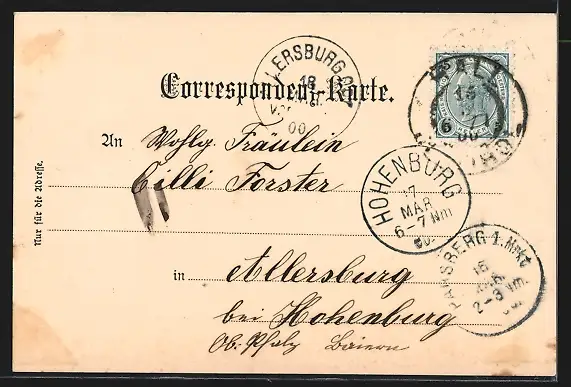 LLERSBURG
18
VOR
00
Correspondenz-Karte.
15
6
HOHENBURG
17
MAR
6-7 Nm
00
PARSBERG 1. Mrkt
16
2-3 Nm.
An Wohlg. Fräulein
Cilli Forster
in Allersburg
bei Hohenburg
Ob. Pfalz Baiern
Nur für die Adresse.